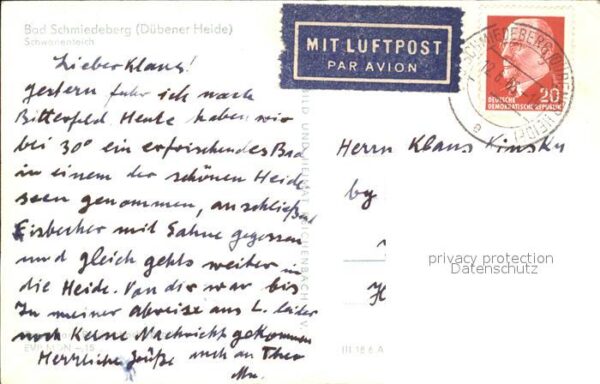 Bad Schmiedeberg (Dübener Heide)
Schwanenteich
Lieber Klaus!
gestern fuhr ich nach
Bitterfeld Heute haben wir
bei 30° ein erfrischendes Bad
in einem der schönen Heide
seen genommen, anschließend
Eisbecher mit Sahne gegessen
und gleich gehts weiter in
die Heide. Von dir war bis
zu meiner Abreise aus L. leider
noch keine Nachricht gekommen
Herzliche Grüße auch an Theo
MIT LUFTPOST
PAR AVION
SCHMIEDEBERG
20
DEUTSCHE
DEMOKRATISCHE REPUBLIK
BILD UND HEIMAT REICHENBACH
Herrn Klaus Kinsky
by
privacy protection
Datenschutz
III 18 6 A